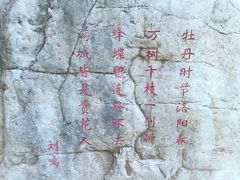 牡丹时节洛阳春
万树千枝一新
蜂蝶留连不去
满城皆是赏花人
刘鸣